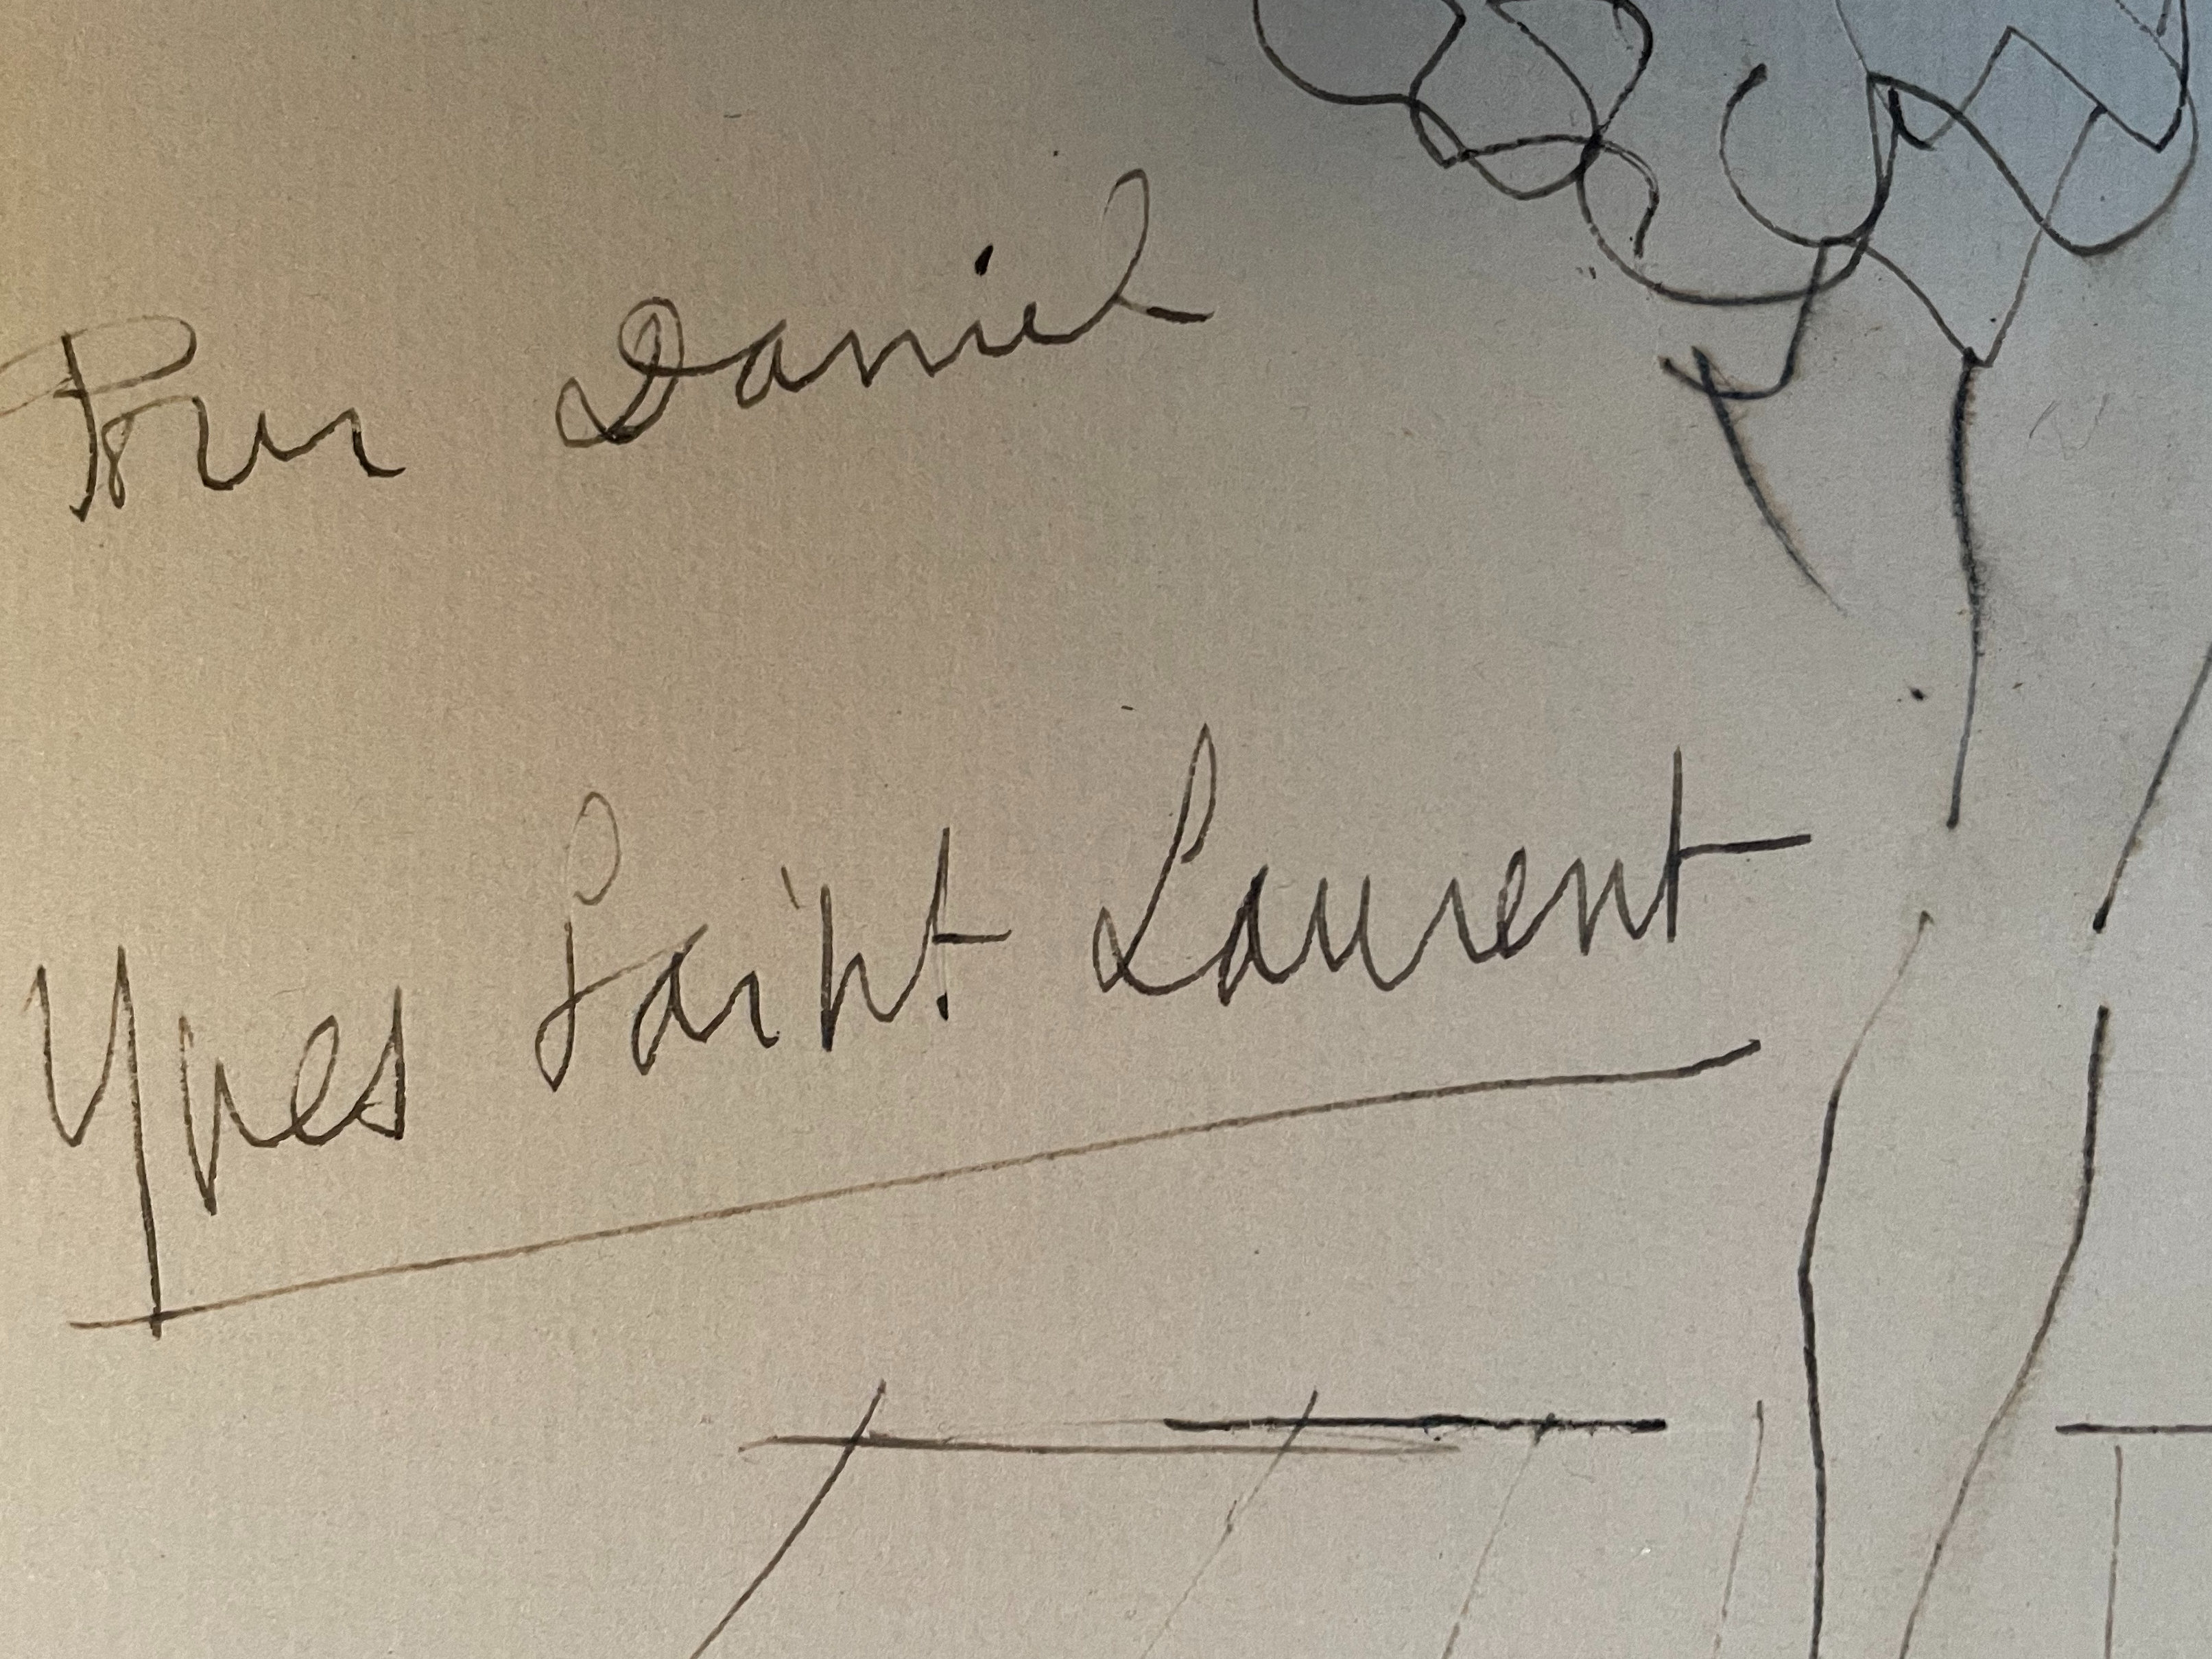 Pour Daniel
Yves Saint Laurent